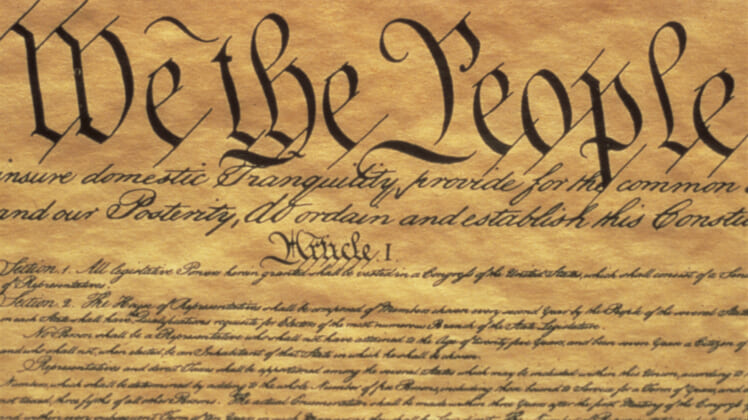 We the People
insure domestic Tranquility, provide for the common
and our Posterity, do ordain and establish this Constitu
Article. I.
Section. 1. All legislative Powers herein granted shall be vested in a Congress of the United States, which shall consist of a Sena
of Representatives.
Section. 2. The House of Representatives shall be composed of Members chosen every second Year by the People of the several States
in each State shall have the Qualifications requisite for Electors of the most numerous Branch of the State Legislature.
No Person shall be a Representative who shall not have attained to the Age of twenty five Years, and been seven Years a Citizen of
and who shall not, when elected, be an Inhabitant of that State in which he shall be chosen.
Representatives and direct Taxes shall be apportioned among the several States which may be included within this Union, according to
Numbers, which shall be determined by adding to the whole Number of free Persons, including those bound to Service for a Term of Years, and
not taxed, three fifths of all other Persons. The actual Enumeration shall be made within three Years after the first Meeting of the Congress